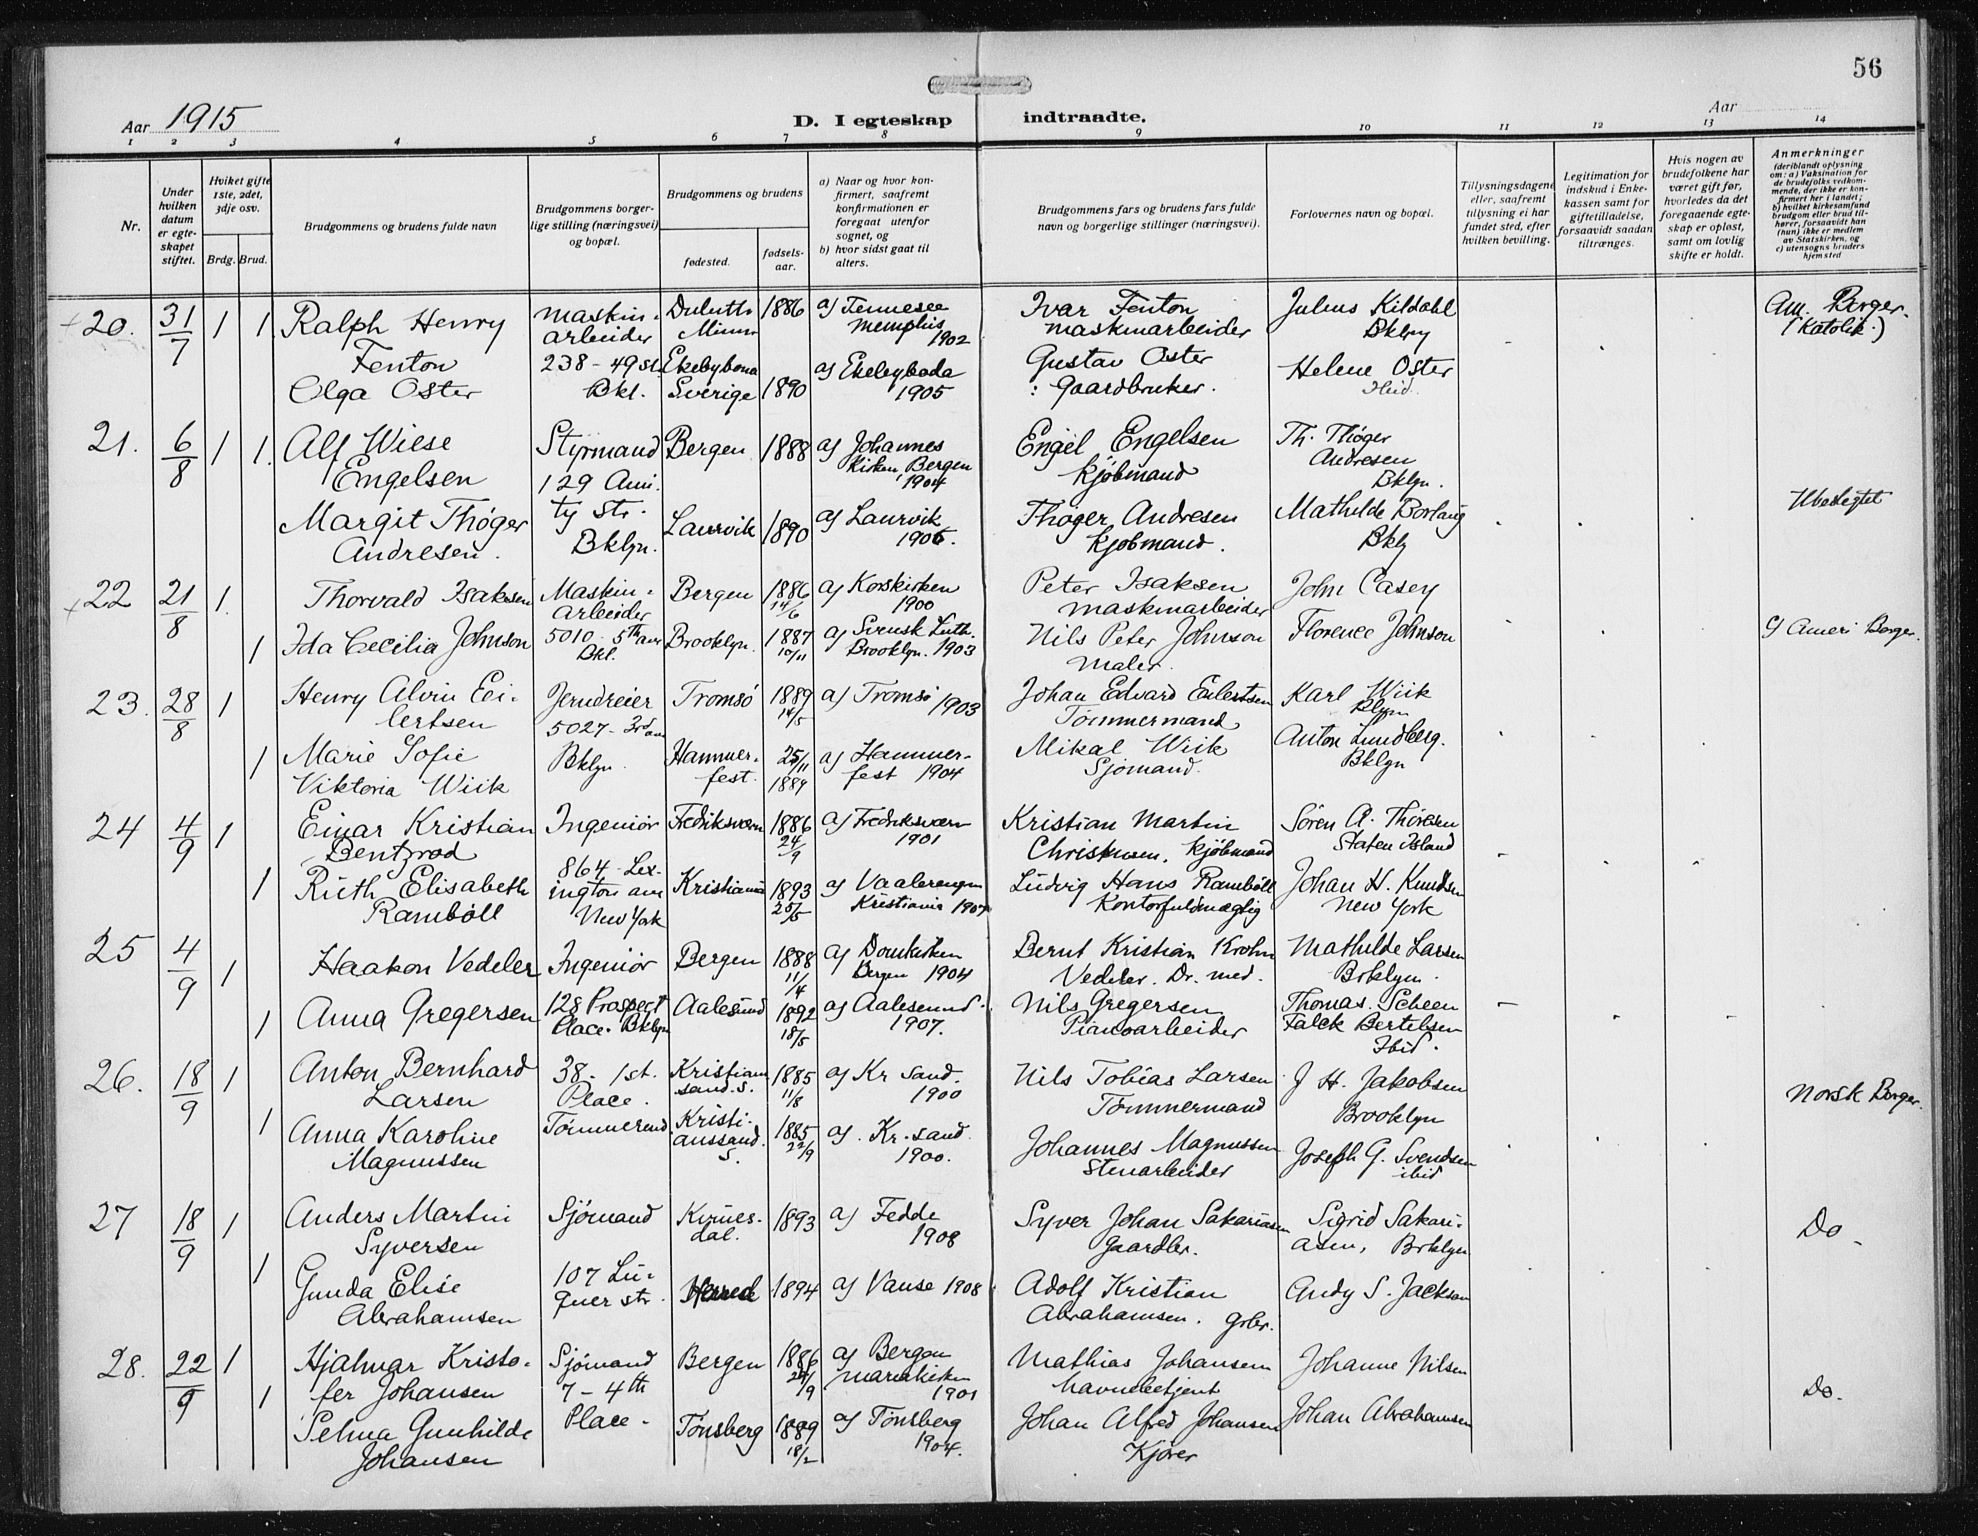 56
Aar 1915
D. I egteskap indtraadte.
Aar
1 2 3 4 5 6 7 8 9 10 11 12 13 14
Nr.
Under hvilken datum er egteskapet stiftet.
Hviket gifte 1ste, 2det, 3dje osv.
Brdg. Brud.
Brudgommens og brudens fulde navn
Brudgommens borgerlige stilling (næringsvei) og bopæl.
Brudgommens og brudens
fødested.
fødselsaar.
a) Naar og hvor konfirmert, saafremt konfirmationen er foregaat utenfor sognet, og
b) hvor sidst gaat til alters.
Brudgommens fars og brudens fars fulde navn og borgerlige stillinger (næringsvei).
Forlovernes navn og bopæl.
Tillysningsdagene eller, saafremt tillysning ei har fundet sted, efter hvilken bevilling.
Legitimation for indskud i Enkekassen samt for giftetilladelse, forsaavidt saadan tiltrænges.
Hvis nogen av brudefolkene har været gift før, hvorledes da det foregaaende egteskap er opløst, samt om lovlig skifte er holdt.
Anmerkninger
(deriblandt oplysning om: a) Vaksination for de brudefolks vedkommende, der ikke er konfirmert her i landet; b) hvilket kirkesamfund brudgom eller brud tilhører, forsaavidt han (hun) ikke er medlem av Statskirken, og c) utensogns bruders hjemsted
+20. 31/7 1 1
Ralph Henry
Fenton
Olga Oster
Maskin-
arbeider
238 - 49 st.
Bkl.
Duluth
Minn
1886
Ekebybona
Sverige
1890
a) Tennesee
Memphis
1902
a) Ekebyboda
1905
Ivar Fenton
maskinarbeider
Gustav Oster
: Gaardbruker.
Julius Kildahl
Bkly
Helene Oster
Ibid.
Am. Borger.
(Katolik.)
21. 6/8 1 1.
Alf Wiese
Engelsen
Margit Thøger
Andresen.
Styrmand
129 Ami-
ty str.
Bklyn.
Bergen 1888
Laurvik 1890
a) Johannes
Kirken, Bergen
1904
a) Laurvik
1905.
Engel Engelsen
Kjøbmand
Thøger Andresen
Kjøbmand.
Th. Thøger
Andresen
Bklyn.
Mathilde Borlaug
Bkly
Ubeslegtet
+22 21/8 1. 1
Thorvald Isaksen
Ida Cecilia Johnson
Maskin-
arbeider
5010 - 5th ave
Bkl.
Bergen 1886 14/6
Brooklyn. 1887 10/11
a) Korskirken
1900
a) Svensk Luth.
Brooklyn. 1903
Peter Isaksen
maskinarbeider
Nils Peter Johnson
Maler.
John Casey
Florence Johnson
c) Ameri Borger.
23. 28/8 1 1
Henry Alvin Ei-
lertsen
Marie Sofie
Viktoria Wiik
Jerndreier
5027 - 3rd ave
Bklyn.
Tromsø 1889 14/5
Hammer-
fest. 25/11 1889
a) Tromsø 1903
a) Hammer-
fest 1904
Johan Edvard Eilertsen
Tømmermand
Mikal Wiik
Sjømand.
Karl Wiik
Blyn
Anton Lundberg.
Bklyn
24 4/9 1 1
Einar Kristian
Bentzrød
Ruth Elisabeth
Ramböll
Ingeniør
864 - Lex-
ington ave
New York
Fredriksværn 1886 24/9
Kristiania 1893 25/5
a) Fredriksværn
1901
a) Vaalerengen
Kristiania 1907
Kristian Martin
Christensen. Kjøbmand
Ludvig Hans Ramböll
Kontorfuldmægtig
Søren A. Thoresen
Staten Island
Johan H. Knudsen
New York
25 4/9 1 1
Haakon Vedeler
Anna Gregersen
Ingeniør
128 Prospect
Place. Bklyn
Bergen 1888 11/4
Aalesund 1892 18/5
a) Domkirken
Bergen 1904
a) Aalesund.
1907.
Bernt Kristian Krohn
Vedeler. Dr. med.
Nils Gregersen
Pianoarbeider
Mathilde Larsen
Brklyn.
Thomas Scheen
Falck Bertelsen
Ibid.
26. 18/9 1 1
Anton Bernhard
Larsen
Anna Karoline
Magnussen
38 - 1st.
Place.
Tømmermd
Kristian
sand. S. 1885 11/8
Kristi-
anssand.
S. 1885 22/9
a) Kr Sand.
1900
a). Kr. Sand.
1900.
Nils Tobias Larsen
Tømmermand
Johannes Magnussen
Stenarbeider
J H. Jakobsen
Brooklyn
Joseph G. Svendsen
ibid
Norsk Borger.
27 18/9 1 1
Anders Martin
Syversen
Gunda Elise
Abrahamsen
Sjømand
107 Lu-
quer str.
Kvines-
dal. 1893
Herred 1894
a) Fedde
1908
a) Vanse 1908
Syver Johan Sakariasen
Gaardbr.
Adolf Kristian
Abrahamsen. Grbr.
Sigrid Sakari-
asen, Brklyn
Andy S. Jackson
Do
28. 22/9 1 1
Hjalmar Kristo-
fer Johansen
Selma Gunhilde
Johansen
Sjømand
7 - 4th
Place -
Bergen 1886 24/9
Tønsberg 1889 18/2
a) Bergen
Mariakirken
1901
a) Tønsberg
1904.
Mathias Johansen
havnebetjent
Johan Alfred Johansen
Kjører
Johanne Nilsen
Johan Abrahamsen
Do.